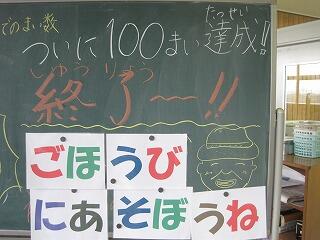 でのまい数
ついに100まい達成!!
たっせい
しゅうりょう
終了〜!!
ごほうび
にあそぼうね